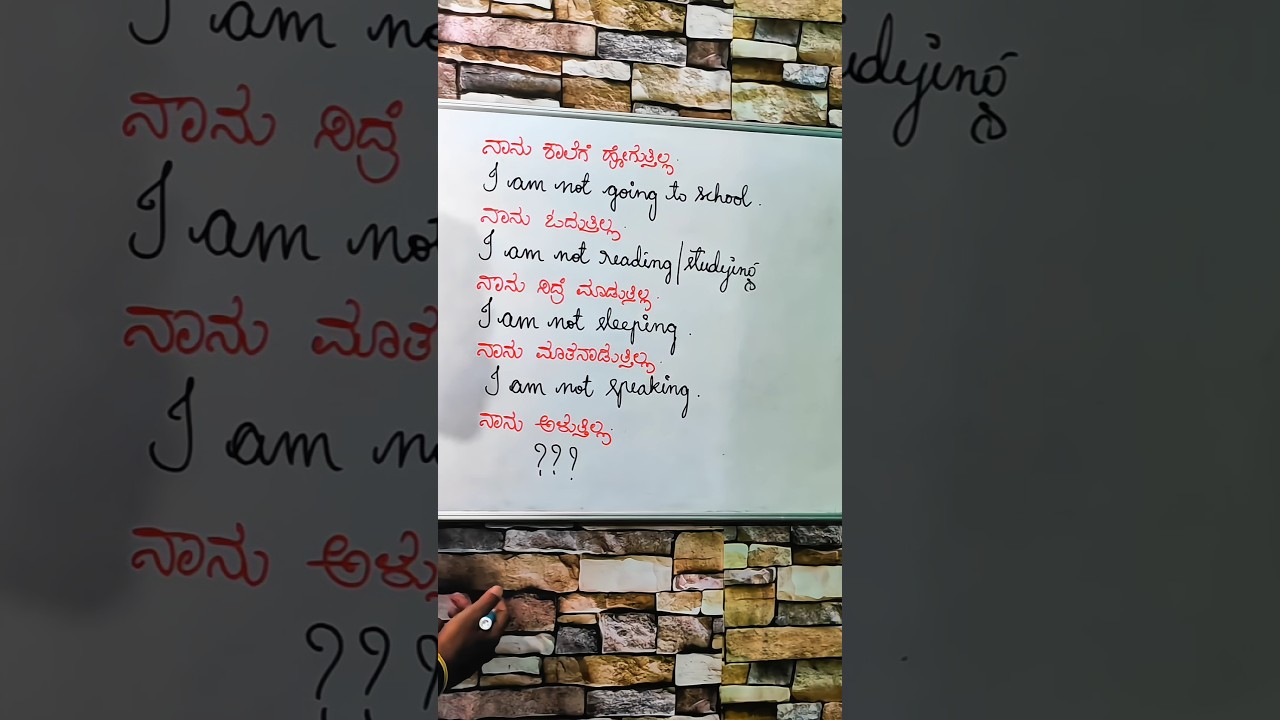 ನಾನು ಶಾಲೆಗೆ ಹೋಗುತ್ತಿಲ್ಲ.
I am not going to school.
ನಾನು ಓದುತ್ತಿಲ್ಲ.
I am not reading/studying
ನಾನು ನಿದ್ರೆ ಮಾಡುತ್ತಿಲ್ಲ.
I am not sleeping.
ನಾನು ಮಾತನಾಡುತ್ತಿಲ್ಲ.
I am not speaking.
ನಾನು ಅಳುತ್ತಿಲ್ಲ.
???